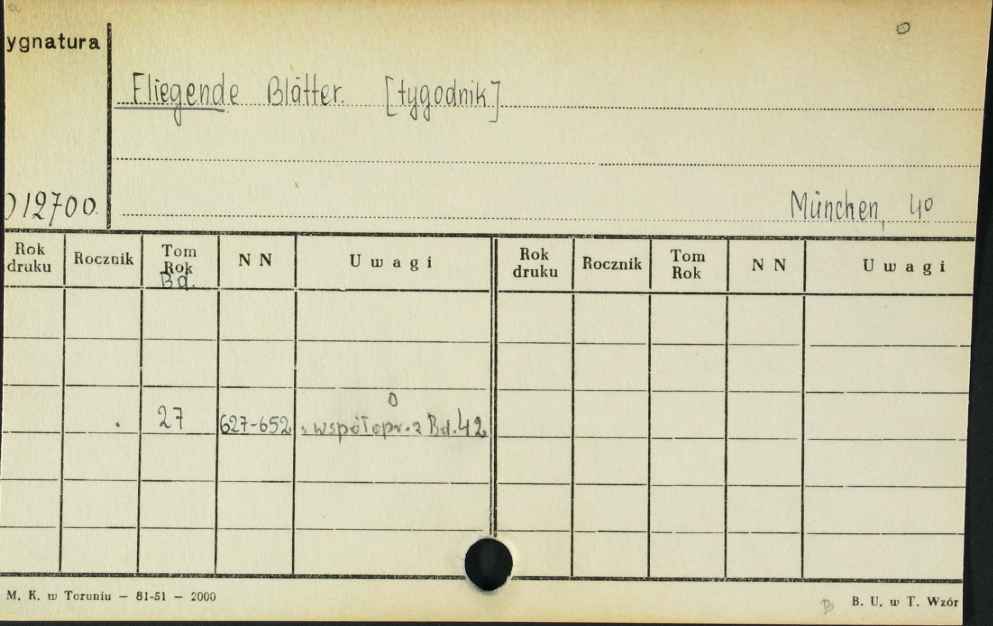 ygnatura
Fliegende Blätter. [tygodnik]
012700.
München, 4º
Rok druku Rocznik Tom Rok Bd. N N U w a g i Rok druku Rocznik Tom Rok N N U w a g i
0
27 627-652 współopr. z Bd. 42
M. K. w Toruniu — 81-51 — 2000
B. U. w T. Wzór